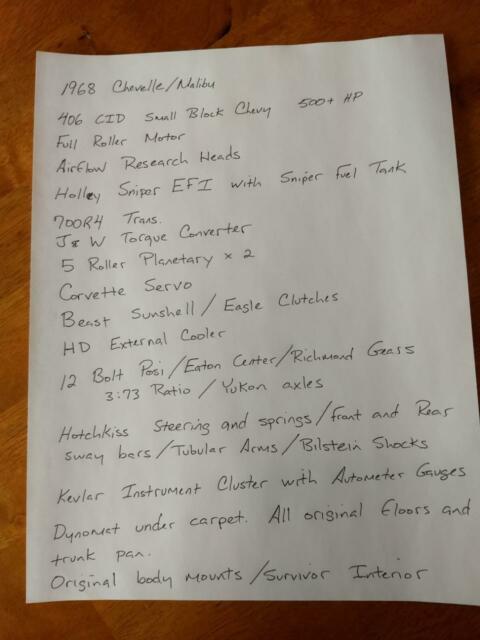 1968 Chevelle/Malibu
406 CID Small Block Chevy 500+ HP
Full Roller Motor
Airflow Research Heads
Holley Sniper EFI with Sniper Fuel Tank
700R4 Trans.
J&W Torque Converter
5 Roller Planetary x 2
Corvette Servo
Beast Sunshell/Eagle Clutches
HD External Cooler
12 Bolt Posi/Eaton Center/Richmond Gears
3:73 Ratio/Yukon axles
Hotchkiss Steering and springs/front and Rear
sway bars/Tubular Arms/Bilstein Shocks
Kevlar Instrument Cluster with Autometer Gauges
Dynomat under carpet. All original floors and
trunk pan.
Original body mounts/Survivor Interior